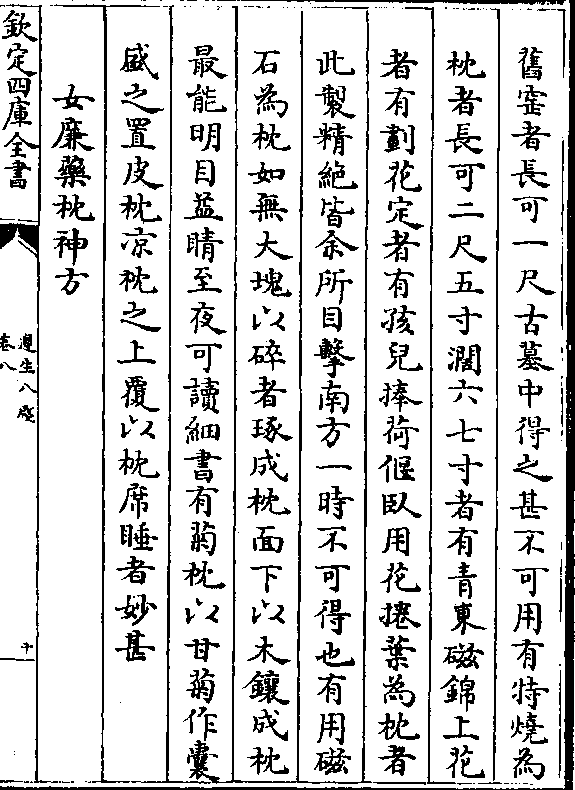 舊窑者長可一尺古墓中得之甚不可用有特燒為
枕者長可二尺五寸濶六七寸者有青東磁錦上花
者有劃花定者有孩兒捧荷偃臥用花捲葉為枕者
此製精絶皆余所目擊南方一時不可得也有用磁
石為枕如無大塊以碎者琢成枕面下以木鑲成枕
最能明目益睛至夜可讀細書有菊枕以甘菊作囊
盛之置皮枕凉枕之上覆以枕席睡者妙甚
女廉藥枕神方
欽定四庫全書
遵生八牋
卷八
十